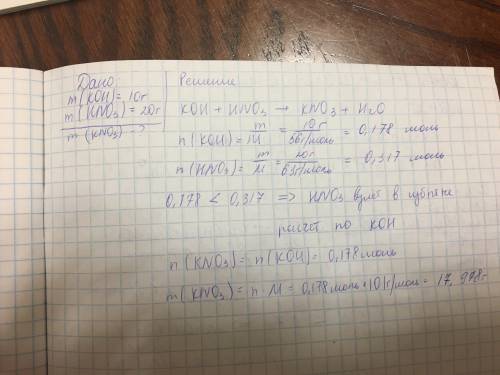 Дано
m(KOH) = 10г
m(HNO3) = 20г
m(KNO3) - ?
Решение
KOH + HNO3 → KNO3 + H2O
n(KOH) = m/M = 10г/56г/моль = 0,178 моль
n(HNO3) = m/M = 20г/63г/моль = 0,317 моль
0,178 < 0,317 => HNO3 взят в избытке
расчет по KOH
n(KNO3) = n(KOH) = 0,178 моль
m(KNO3) = n · M = 0,178 моль · 101г/моль = 17,978г